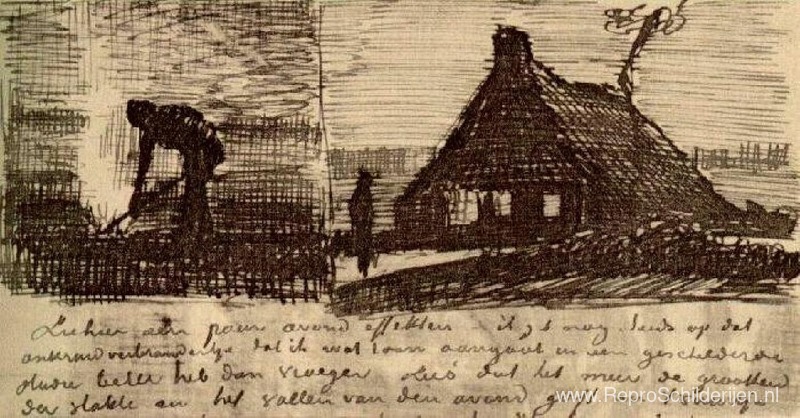 Ziehier een paar avond effekten ik nog steeds op dat
onkruidverbrandertje dat ik wat toon aangaat in een geschilderde
studie beter heb dan vroeger dat het meer de grootheid
der vlakte en het vallen van den avond geeft
www.ReproSchilderijen.nl